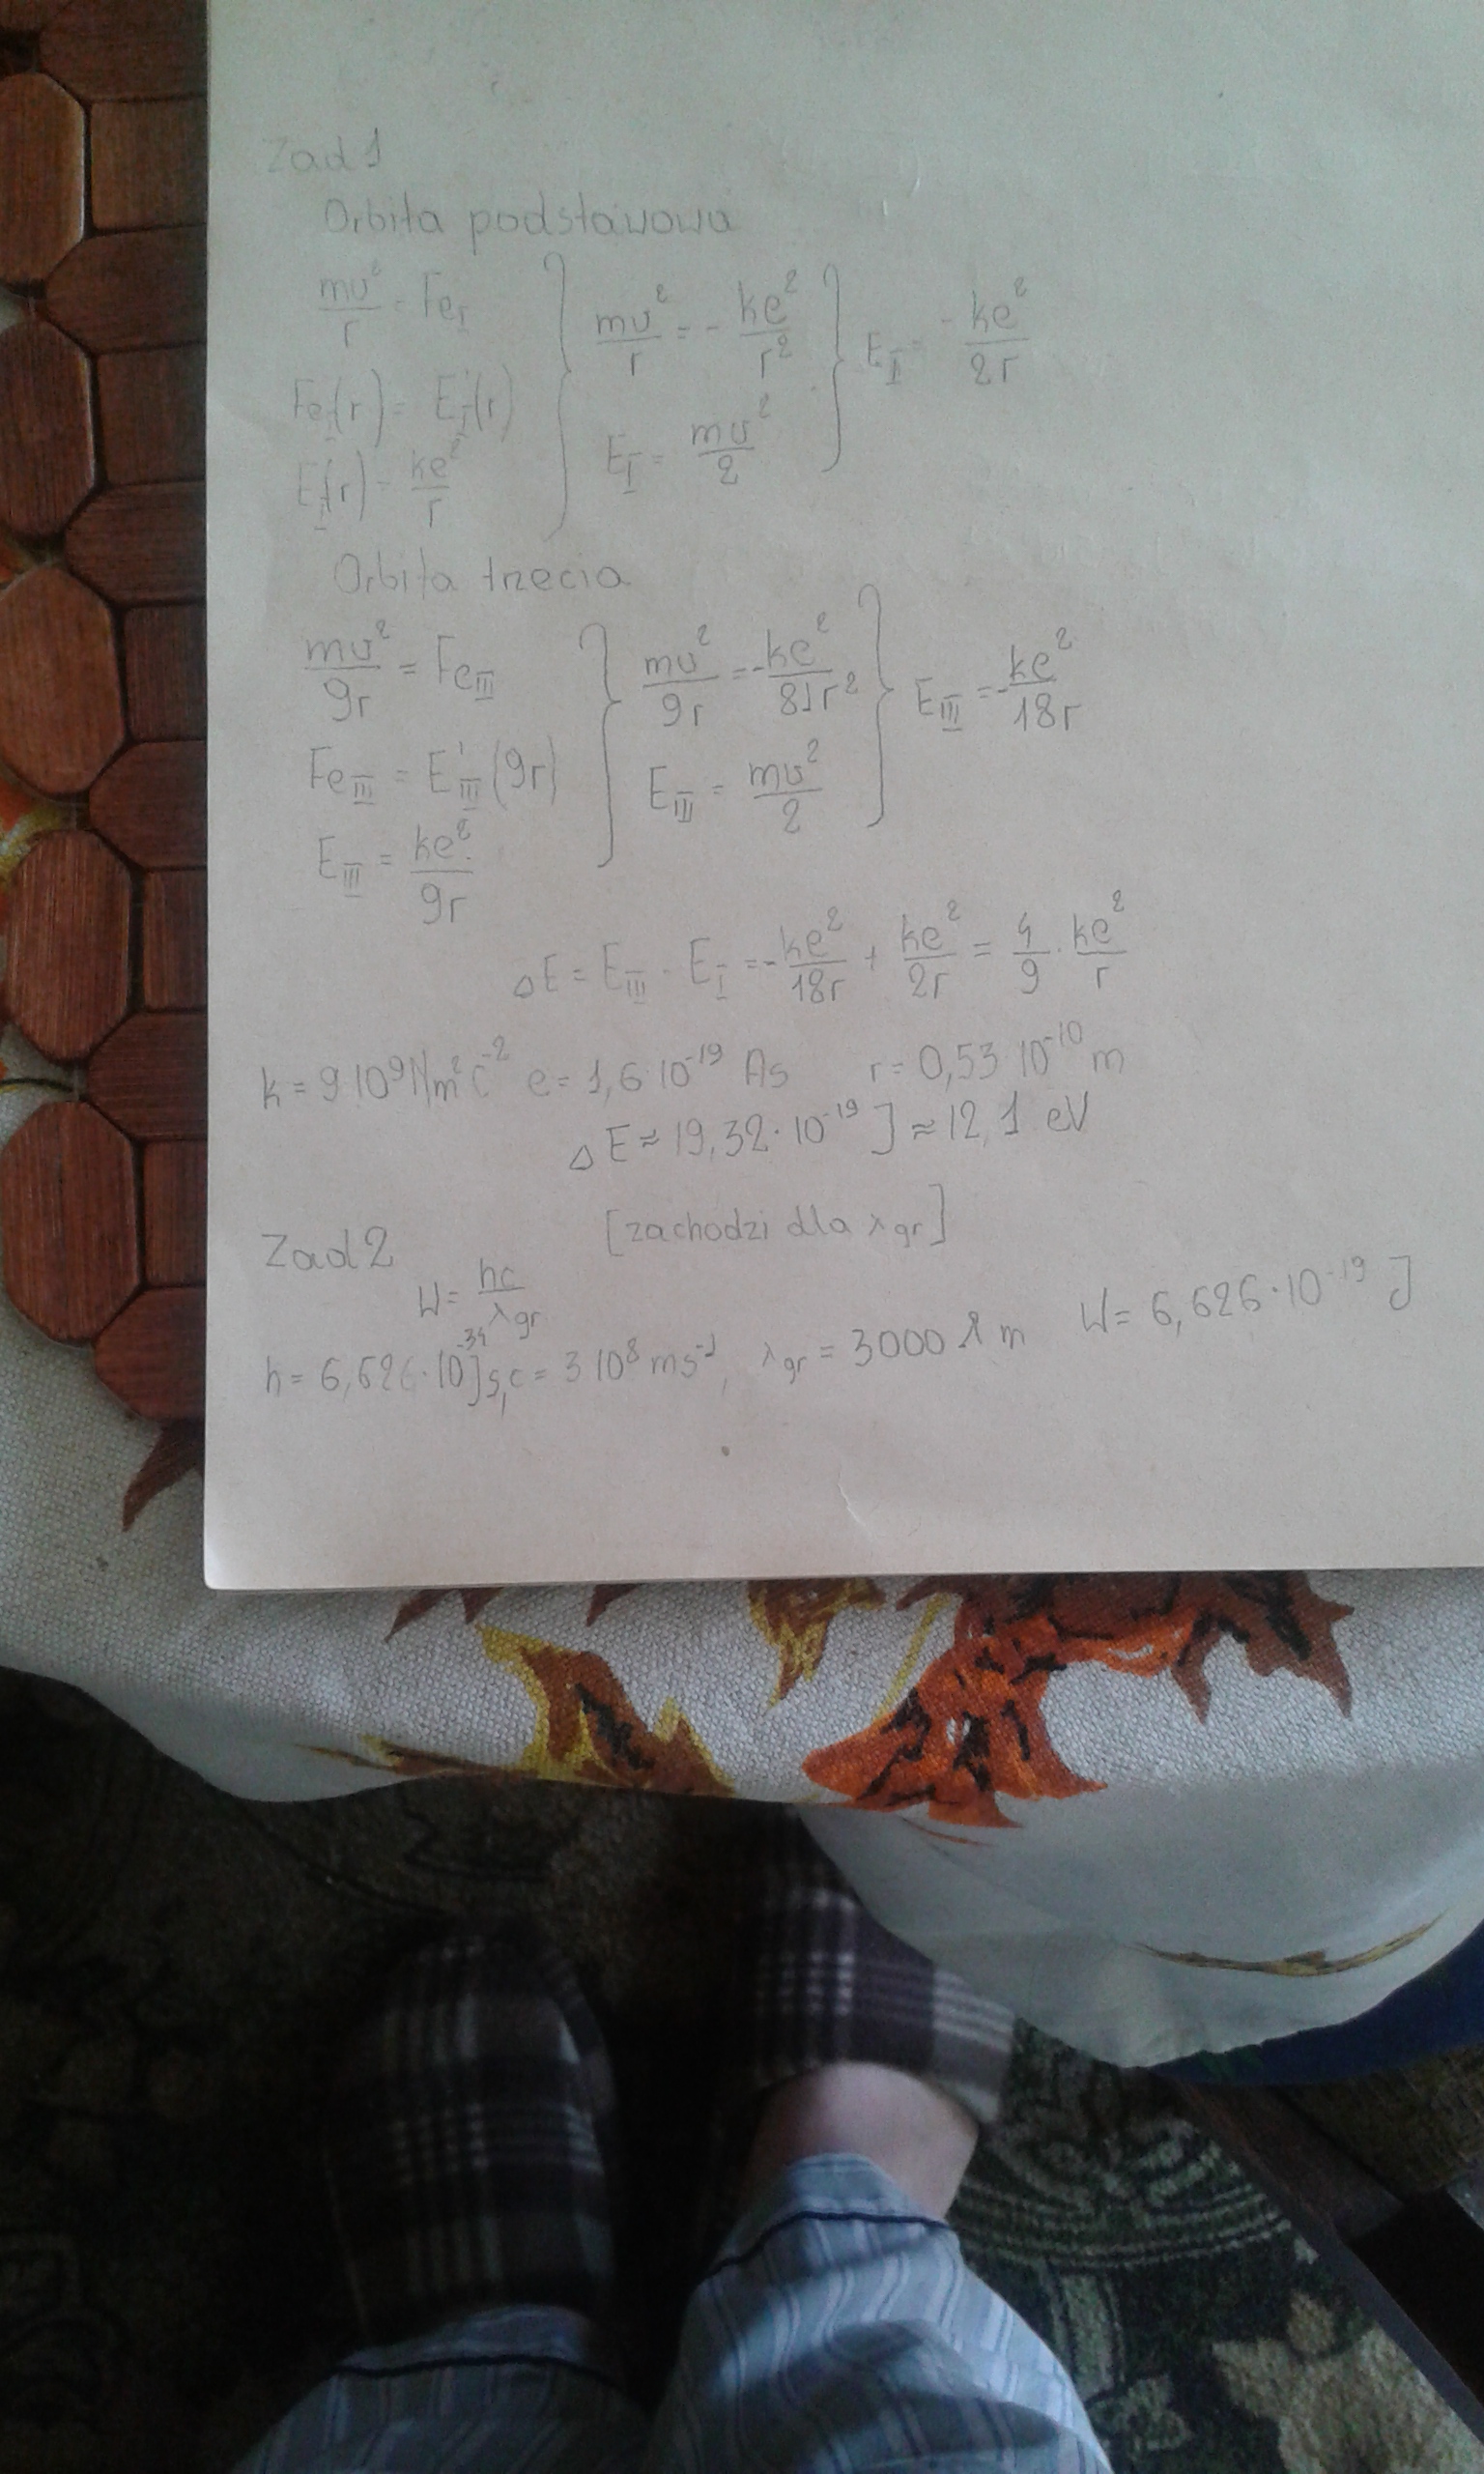 Zad 1
Orbita podstawowa
mv²/r = Fe_I } mv²/r = - ke²/r² } E_I = - ke²/2r
Fe_I(r) = E'_I(r)
E_I = mv²/2
E_I(r) = ke²/r
Orbita trzecia
mv²/9r = Fe_III } mv²/9r = - ke²/81r² } E_III = - ke²/18r
Fe_III = E'_III (9r)
E_III = mv²/2
E_III = ke²/9r
ΔE = E_III - E_I = - ke²/18r + ke²/2r = 4/9 · ke²/r
k = 9 10⁹ Nm²C⁻² e = 1,6·10⁻¹⁹ As r = 0,53 10⁻¹⁰ m
ΔE ≈ 19,32·10⁻¹⁹ J ≈ 12,1 eV
Zad 2 [zachodzi dla λgr]
W = hc/λgr
h = 6,626·10⁻³⁴ Js, c = 3 10⁸ ms⁻¹, λgr = 3000 m W = 6,626·10⁻¹⁹ J